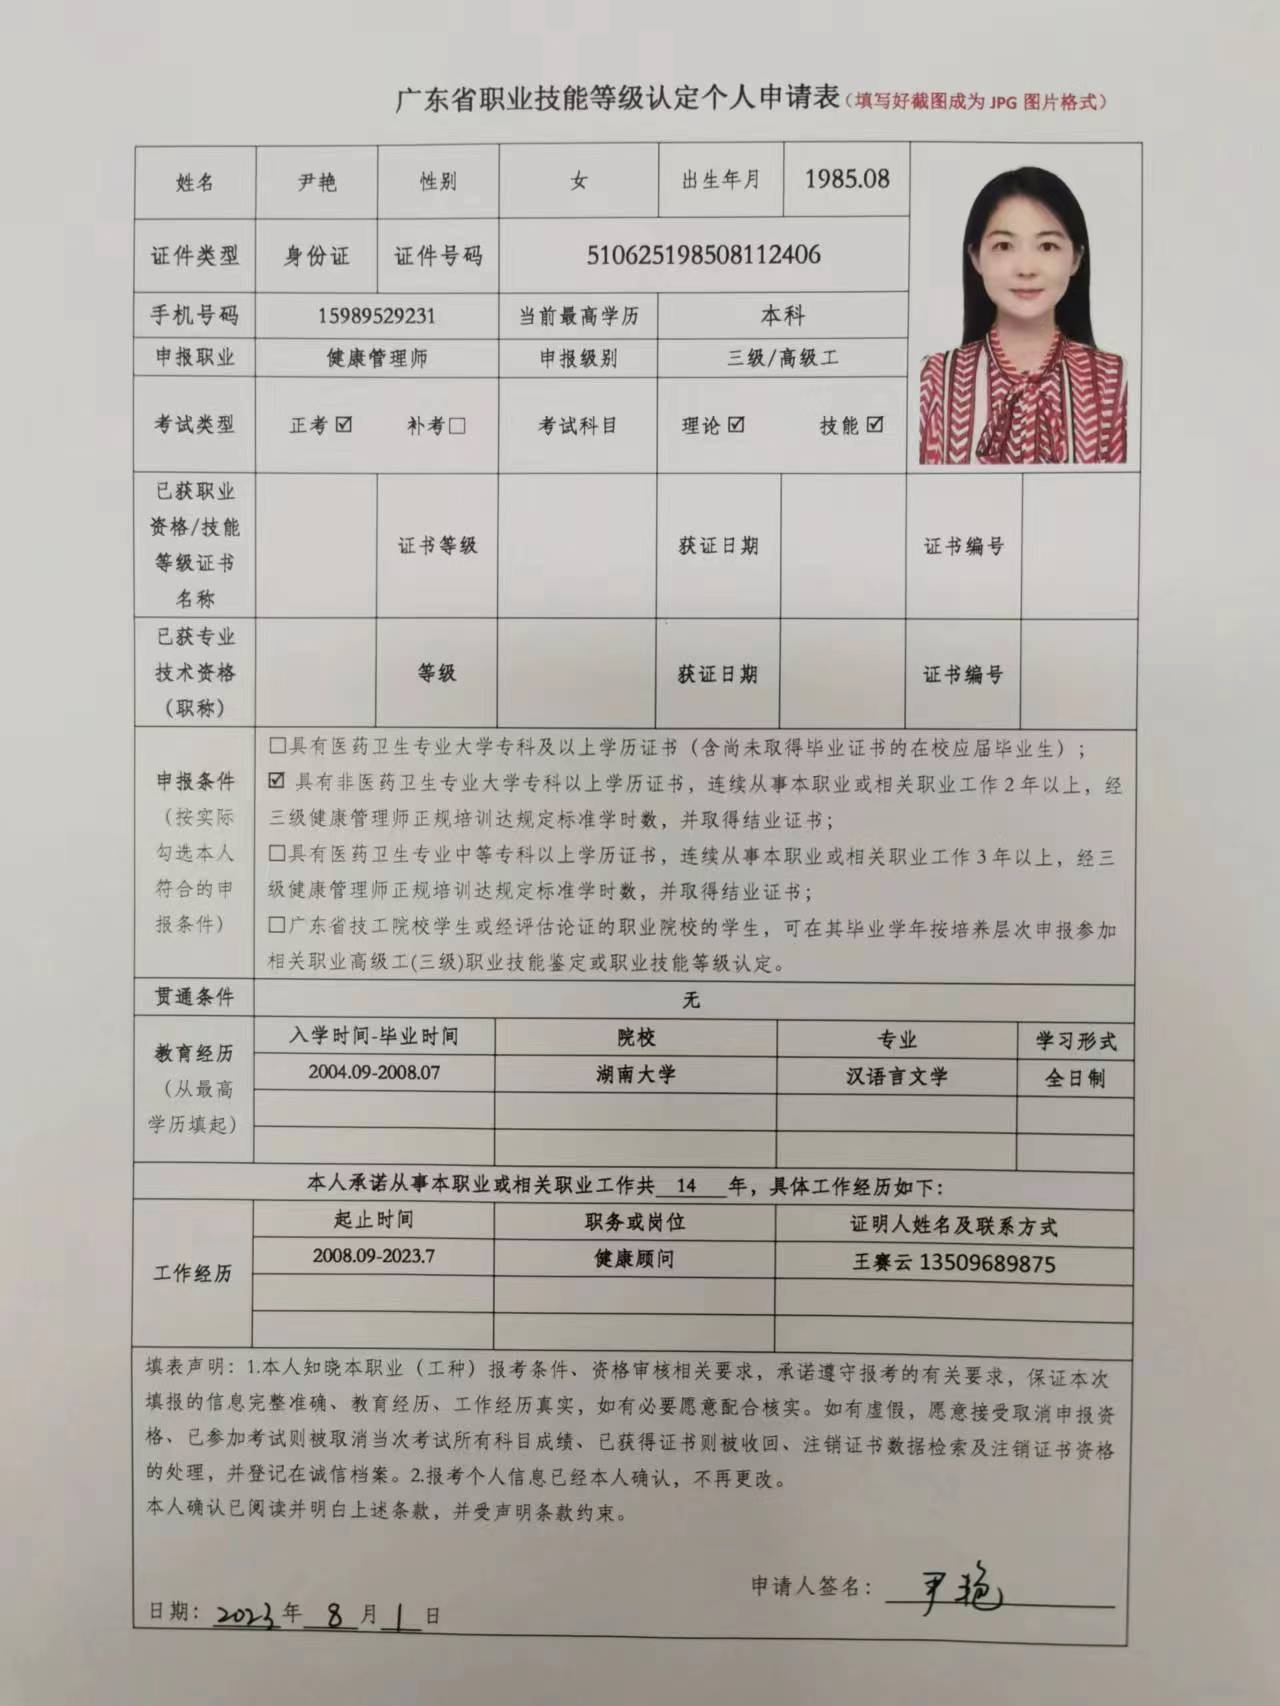 广东省职业技能等级认定个人申请表（填写好截图成为 JPG 图片格式）
姓名 尹艳 性别 女 出生年月 1985.08
证件类型 身份证 证件号码 510625198508112406
手机号码 15989529231 当前最高学历 本科
申报职业 健康管理师 申报级别 三级/高级工
考试类型 正考☑ 补考□ 考试科目 理论☑ 技能☑
已获职业
资格/技能
等级证书
名称
证书等级 获证日期 证书编号
已获专业
技术资格
（职称）
等级 获证日期 证书编号
申报条件
（按实际
勾选本人
符合的申
报条件）
□具有医药卫生专业大学专科及以上学历证书（含尚未取得毕业证书的在校应届毕业生）；
☑ 具有非医药卫生专业大学专科以上学历证书，连续从事本职业或相关职业工作 2 年以上，经
三级健康管理师正规培训达规定标准学时数，并取得结业证书；
□具有医药卫生专业中等专科以上学历证书，连续从事本职业或相关职业工作 3 年以上，经三
级健康管理师正规培训达规定标准学时数，并取得结业证书；
□广东省技工院校学生或经评估论证的职业院校的学生，可在其毕业学年按培养层次申报参加
相关职业高级工(三级)职业技能鉴定或职业技能等级认定。
贯通条件 无
教育经历
（从最高
学历填起）
入学时间-毕业时间 院校 专业 学习形式
2004.09-2008.07 湖南大学 汉语言文学 全日制
本人承诺从事本职业或相关职业工作共 14 年，具体工作经历如下：
工作经历
起止时间 职务或岗位 证明人姓名及联系方式
2008.09-2023.7 健康顾问 王赛云 13509689875
填表声明：1.本人知晓本职业（工种）报考条件、资格审核相关要求，承诺遵守报考的有关要求，保证本次
填报的信息完整准确、教育经历、工作经历真实，如有必要愿意配合核实。如有虚假，愿意接受取消申报资
格、已参加考试则被取消当次考试所有科目成绩、已获得证书则被收回、注销证书数据检索及注销证书资格
的处理，并登记在诚信档案。2.报考个人信息已经本人确认，不再更改。
本人确认已阅读并明白上述条款，并受声明条款约束。
申请人签名：尹艳
日期：2023年 8 月 1 日